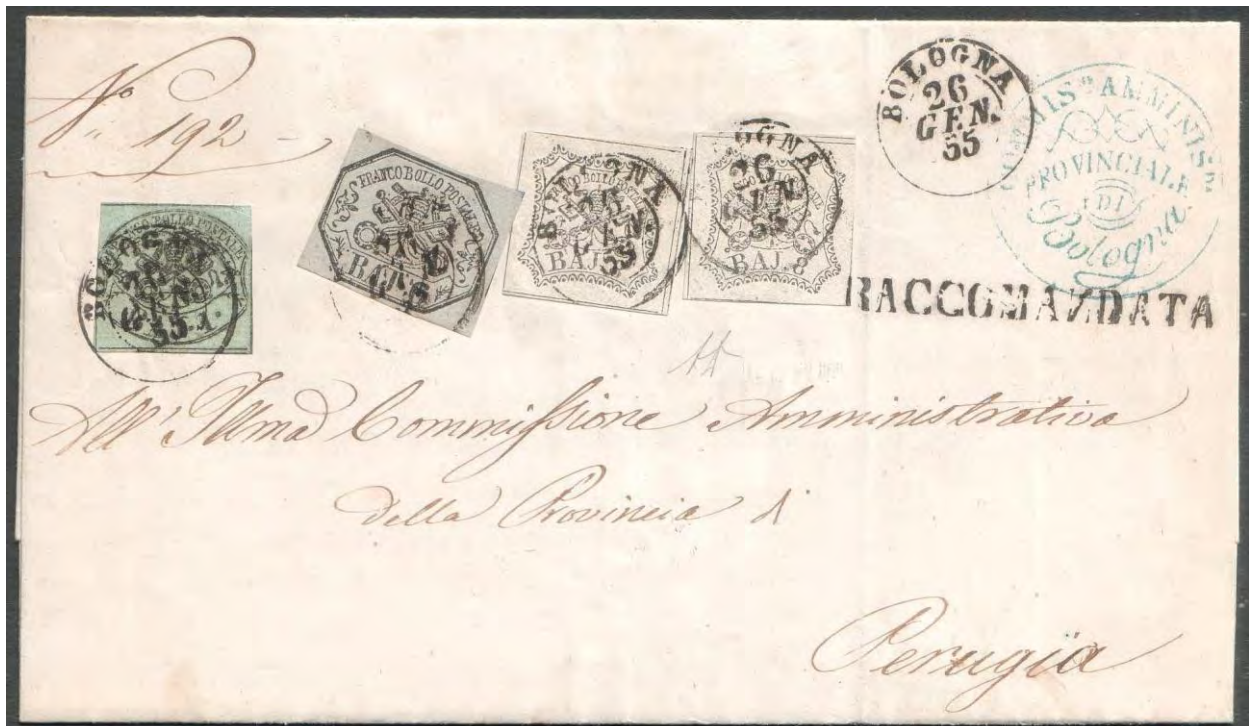 Nº 192
BOLOGNA
26
GEN.
55
COMMISˢ AMMINISᵗᵛᵃ
PROVINCIALE
DI
Bologna
BOLLO POSTALE
FRANCO BOLLO POSTALE
BAJ.
BOLOGNA
26
GEN.
55
BAJ. 8
OGNA
26
GEN.
55
BAJ. 8
RACCOMANDATA
All' Illma Commissione Amministrativa
della Provincia di
Perugia